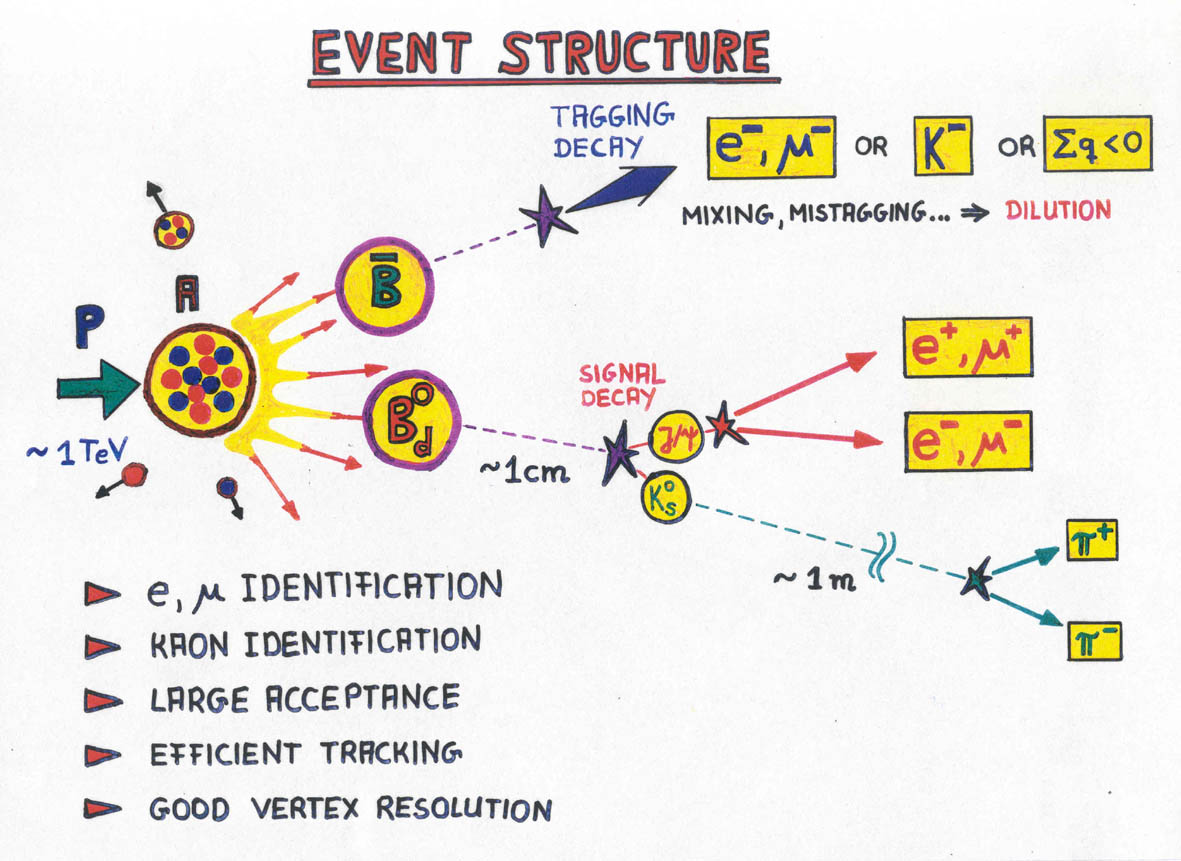 EVENT STRUCTURE
TAGGING
DECAY
e⁻, μ⁻ OR K⁻ OR Σq<0
MIXING, MISTAGGING... ⇒ DILUTION
A
B̄
P
~1TeV
B⁰d
~1cm
SIGNAL
DECAY
J/ψ
K⁰s
e⁺, μ⁺
e⁻, μ⁻
~1m
π⁺
π⁻
e, μ IDENTIFICATION
KAON IDENTIFICATION
LARGE ACCEPTANCE
EFFICIENT TRACKING
GOOD VERTEX RESOLUTION